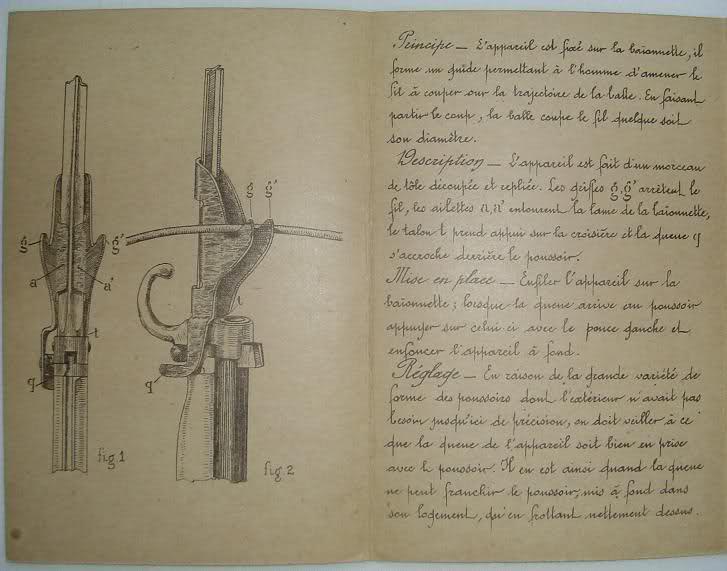 g
g'
a
a'
t
q
fig 1
g
g'
t
q
fig. 2
Principe — L'appareil est fixé sur la baïonnette, il
forme un guide permettant à l'homme d'amener le
fil à couper sur la trajectoire de la balle. En faisant
partir le coup, la balle coupe le fil quelque soit
son diamètre.
Description — L'appareil est fait d'un morceau
de tôle découpée et repliée. Les griffes g, g' arrêtent le
fil, les ailettes a, a' entourent la lame de la baïonnette,
le talon t prend appui sur la croisière et la queue q
s'accroche derrière le poussoir.
Mise en place — Enfiler l'appareil sur la
baïonnette ; lorsque la queue arrive au poussoir
appuyer sur celui ci avec le pouce gauche et
enfoncer l'appareil à fond.
Réglage — En raison de la grande variété de
forme des poussoirs dont l'extérieur n'avait pas
besoin jusqu'ici de précision, on doit veiller à ce
que la queue de l'appareil soit bien en prise
avec le poussoir. Il en est ainsi quand la queue
ne peut franchir le poussoir, mis à fond dans
son logement, qu'en frottant nettement dessus.